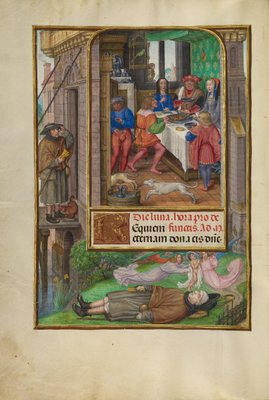 Die lune. hora pro de
functis. Ad m̃.
Requiem
eternam dona eis dñe.